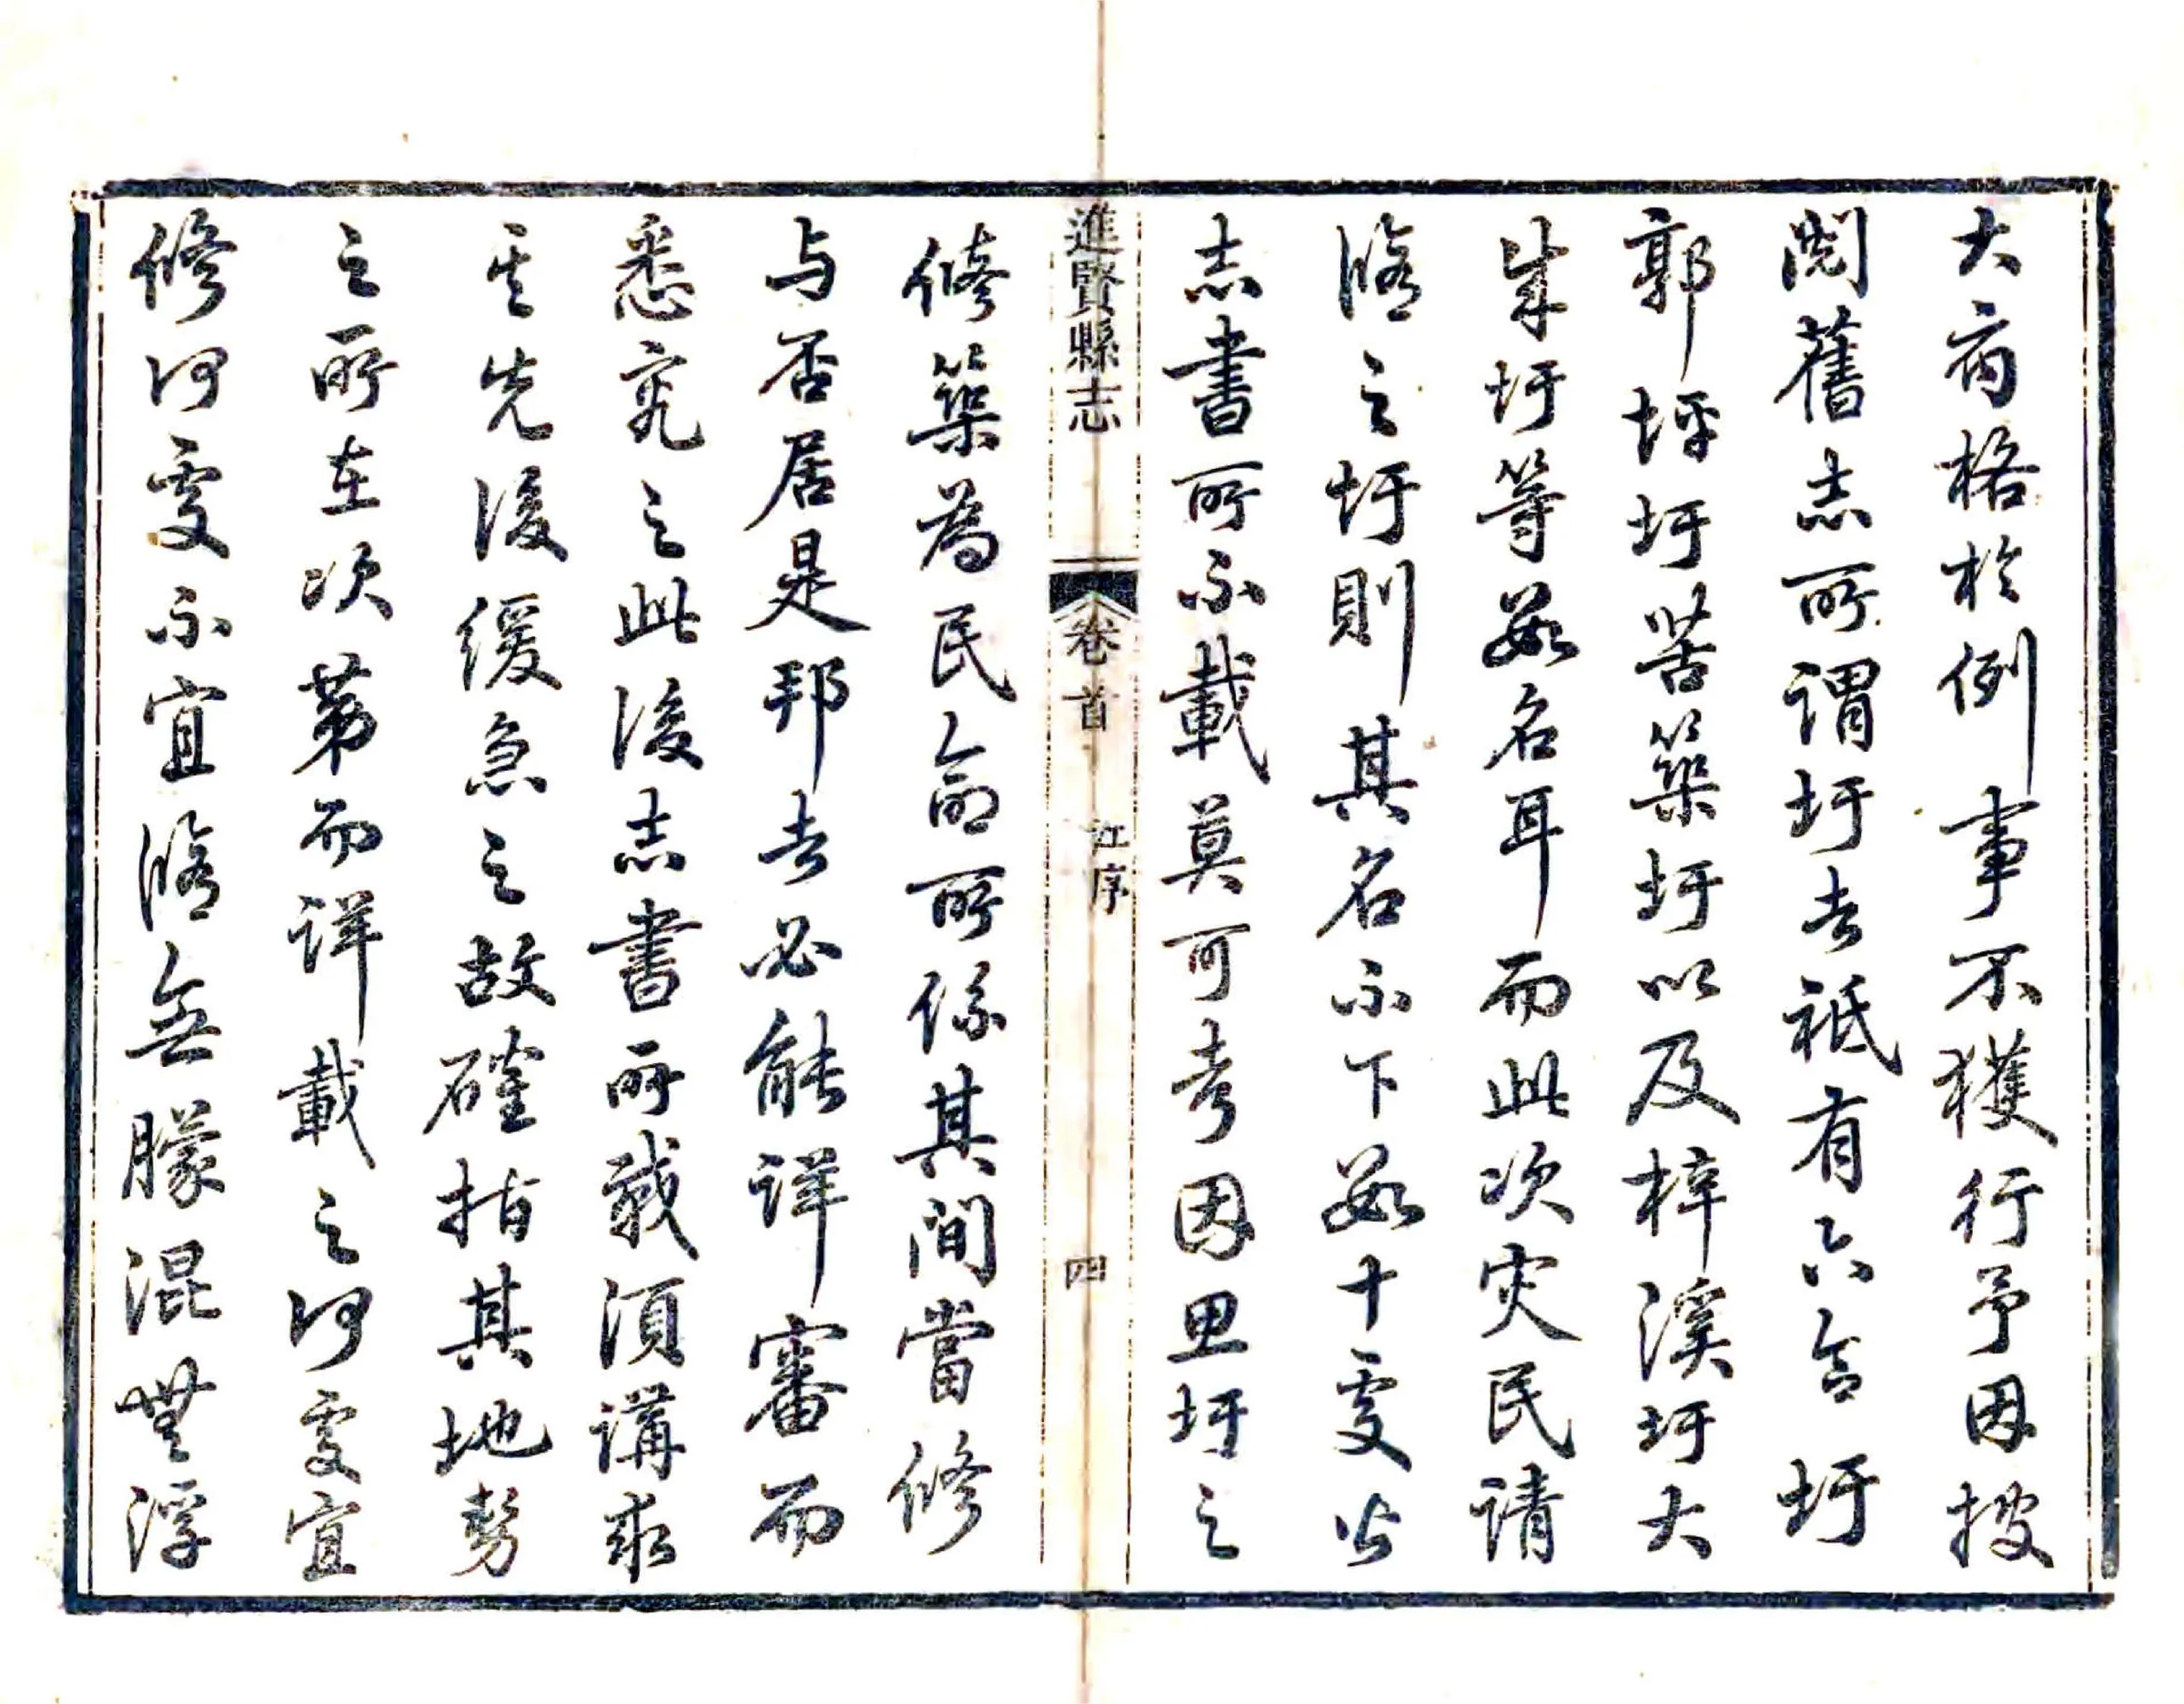 大府格於例事不獲行予因披
閱舊志所謂圩者祇有六合圩
郭坪圩苦築圩以及梓溪圩大
成圩等數名耳而此次灾民請
脩之圩則其名不下數十處皆
志書所不載莫可考因思圩之
進賢縣志
卷首
江序
四
修築為民命所係其間當修
与否居是邦者必能詳審而
悉究之此後志書所載須講求
其先後緩急之故確指其地勢
之所在次第而詳載之何處宜
修何處不宜脩無朦混無浮